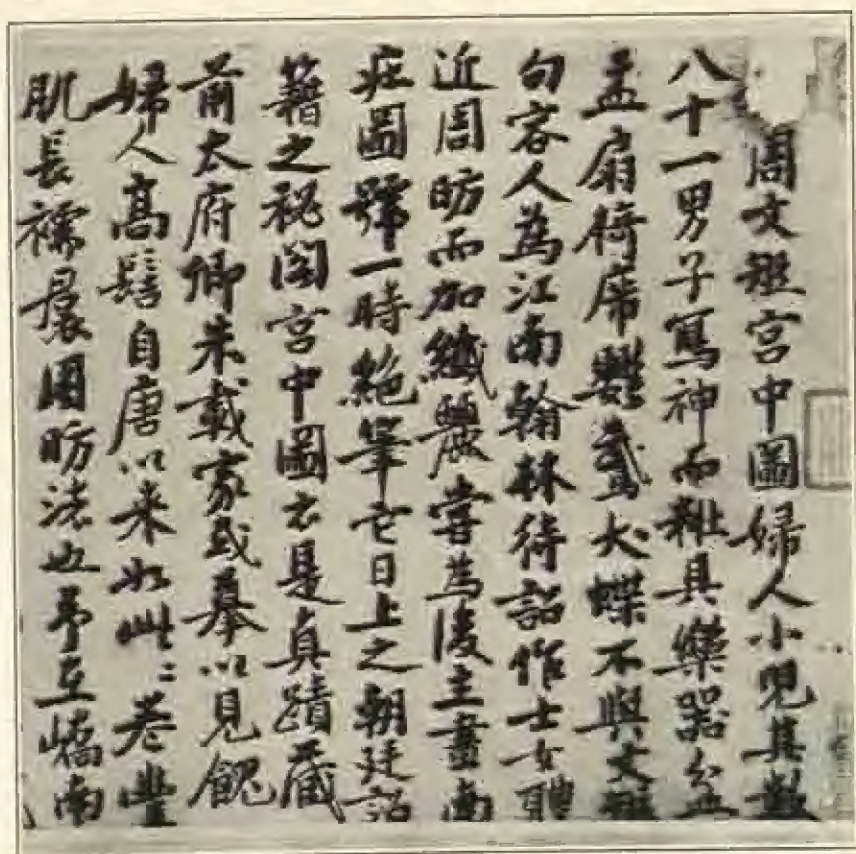 周文矩宮中圖婦人小兒其數
八十一男子寫神而粧具樂器盆
盂扇椅席鸚鵡犬蝶不與文矩
句容人為江南翰林待詔作士女體
近周昉而加纖麗嘗為後主畫南
庄圖號一時絕筆它日上之朝廷詔
籍之秘閣宮中圖云是真蹟藏
前太府卿朱載家或摹以見餽
婦人高髻自唐以来如此〻卷豐
肌長襦裠周昉法也予在嶠南